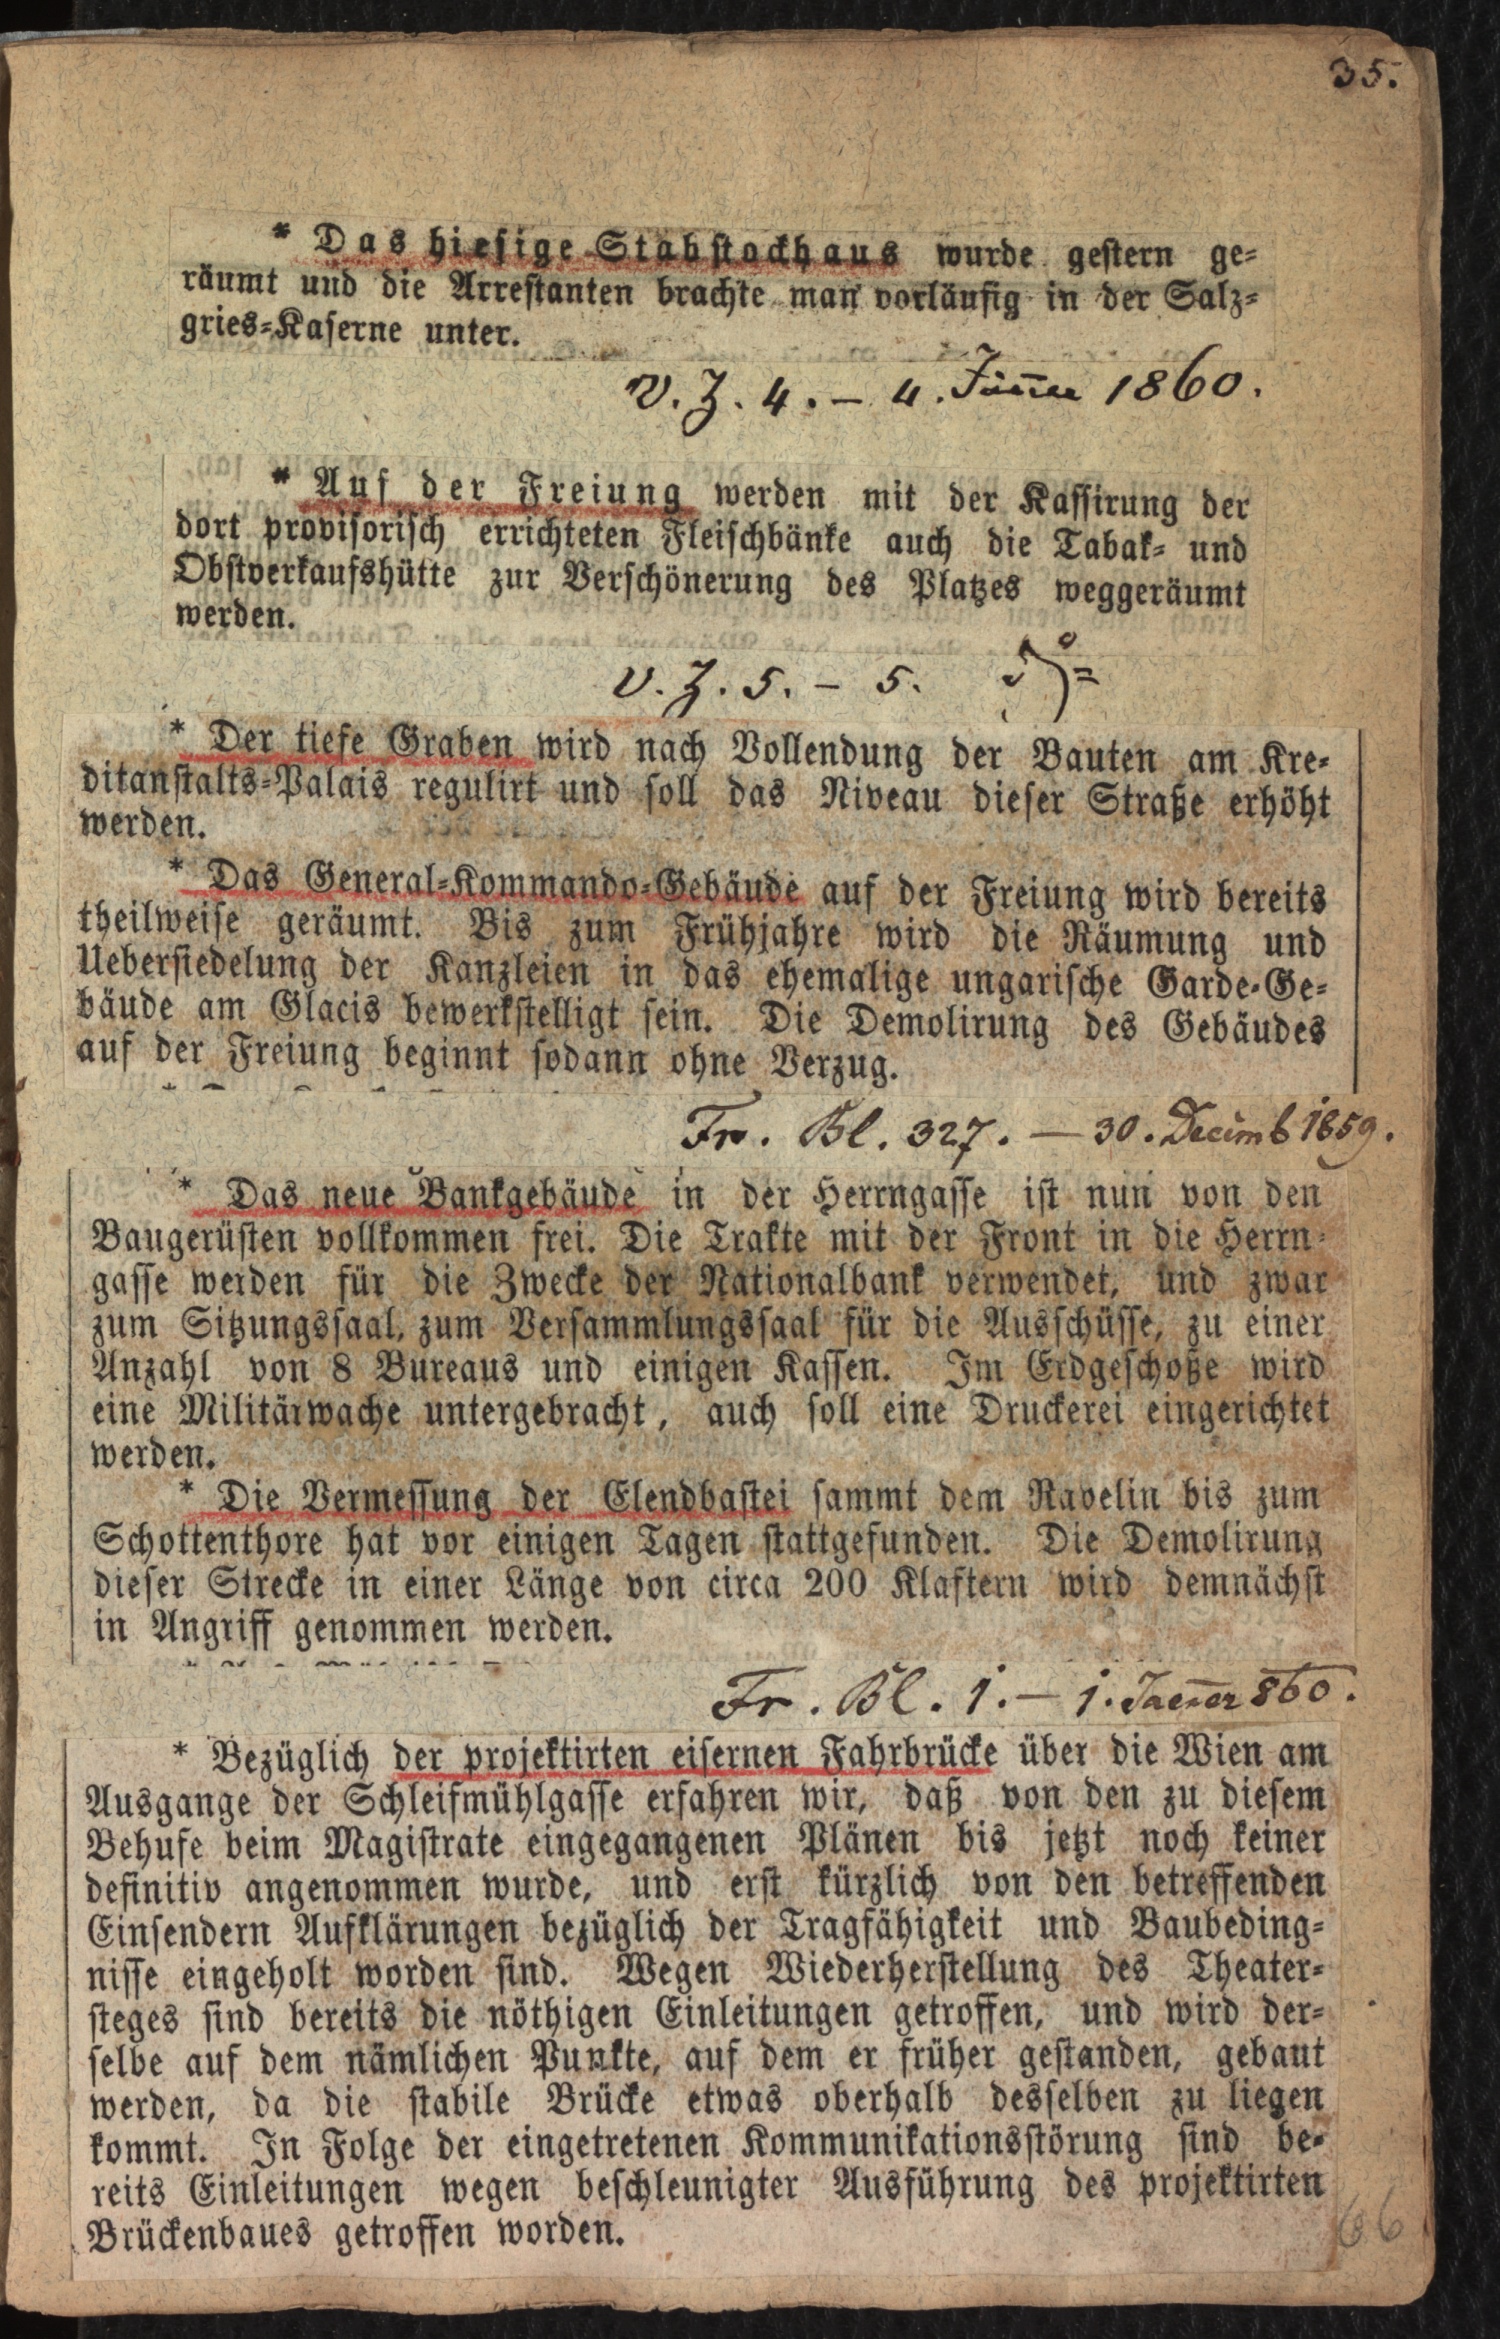 35.
* Das hiesige Stabstockhaus wurde gestern ge-
räumt und die Arrestanten brachte man vorläufig in der Salz-
gries-Kaserne unter.
V. Z. 4. – 4. Jänner 1860.
* Auf der Freiung werden mit der Kassirung der
dort provisorisch errichteten Fleischbänke auch die Tabak- und
Obstverkaufshütte zur Verschönerung des Platzes weggeräumt
werden.
V. Z. 5. – 5.
* Der tiefe Graben wird nach Vollendung der Bauten am Kre-
ditanstalts-Palais regulirt und soll das Niveau dieser Straße erhöht
werden.
* Das General-Kommando-Gebäude auf der Freiung wird bereits
theilweise geräumt. Bis zum Frühjahre wird die Räumung und
Uebersiedelung der Kanzleien in das ehemalige ungarische Garde-Ge-
bäude am Glacis bewerkstelligt sein. Die Demolirung des Gebäudes
auf der Freiung beginnt sodann ohne Verzug.
Fr. Bl. 327. – 30. Decemb 1859.
* Das neue Bankgebäude in der Herrngasse ist nun von den
Baugerüsten vollkommen frei. Die Trakte mit der Front in die Herrn-
gasse werden für die Zwecke der Nationalbank verwendet, und zwar
zum Sitzungssaal, zum Versammlungssaal für die Ausschüsse, zu einer
Anzahl von 8 Bureaus und einigen Kassen. Im Erdgeschoße wird
eine Militärwache untergebracht, auch soll eine Druckerei eingerichtet
werden.
* Die Vermessung der Elendbastei sammt dem Ravelin bis zum
Schottenthore hat vor einigen Tagen stattgefunden. Die Demolirung
dieser Strecke in einer Länge von circa 200 Klaftern wird demnächst
in Angriff genommen werden.
Fr. Bl. 1. – 1. Jaenner 860.
* Bezüglich der projektirten eisernen Fahrbrücke über die Wien am
Ausgange der Schleifmühlgasse erfahren wir, daß von den zu diesem
Behufe beim Magistrate eingegangenen Plänen bis jetzt noch keiner
definitiv angenommen wurde, und erst kürzlich von den betreffenden
Einsendern Aufklärungen bezüglich der Tragfähigkeit und Baubeding-
nisse eingeholt worden sind. Wegen Wiederherstellung des Theater-
steges sind bereits die nöthigen Einleitungen getroffen, und wird der-
selbe auf dem nämlichen Punkte, auf dem er früher gestanden, gebaut
werden, da die stabile Brücke etwas oberhalb desselben zu liegen
kommt. In Folge der eingetretenen Kommunikationsstörung sind be-
reits Einleitungen wegen beschleunigter Ausführung des projektirten
Brückenbaues getroffen worden.
66